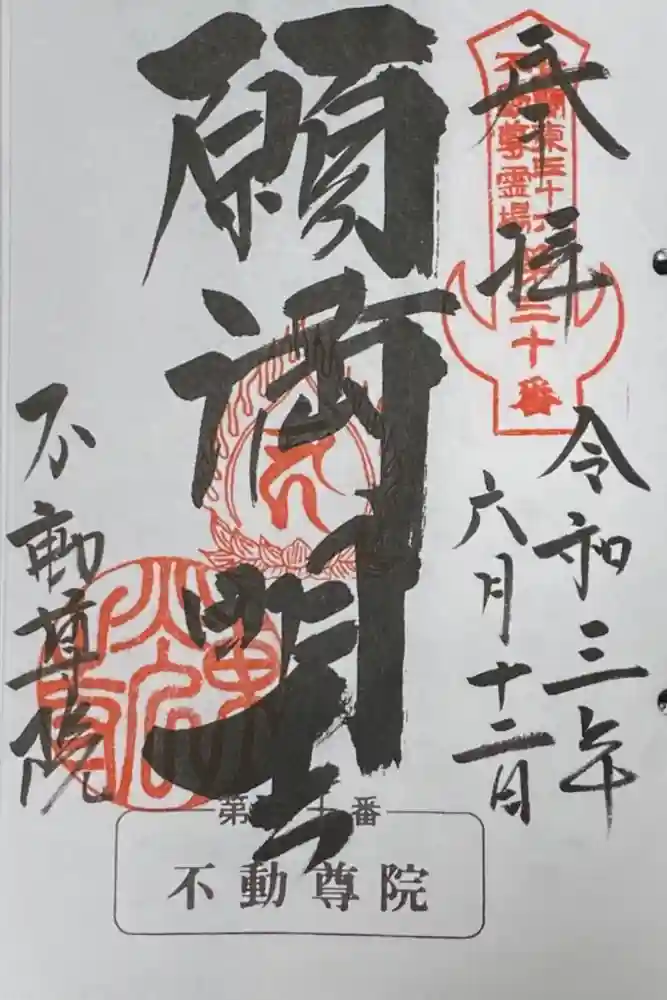 奉拝
北関東三十六
不動尊霊場
第三十番
令和三年
六月十二日
願満明王
不動尊院
第三十番
不動尊院